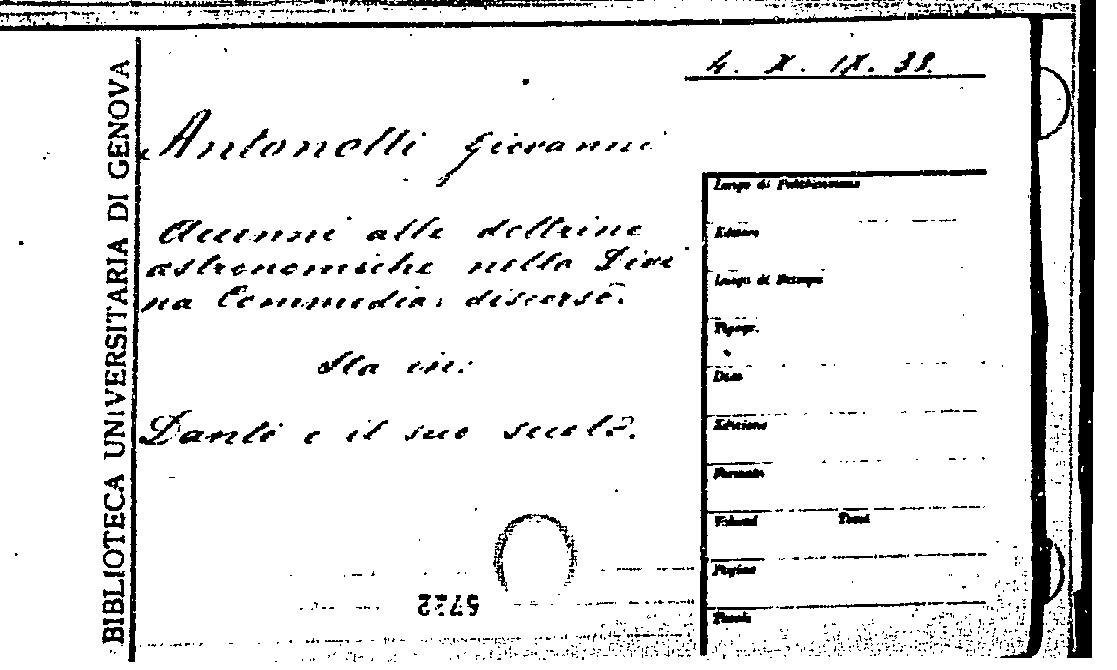 BIBLIOTECA UNIVERSITARIA DI GENOVA
4. X. IX. 33.
Antonelli Giovanni
Accenni alle dottrine
astronomiche nella Divi
na Commedia: discorso.
Sta in:
Dante e il suo secolo.
Luogo di Pubblicazione
Editore
Luogo di Stampa
Tipogr.
Data
Edizione
Formato
Volumi Tomi
Pagine
Tavole
5722